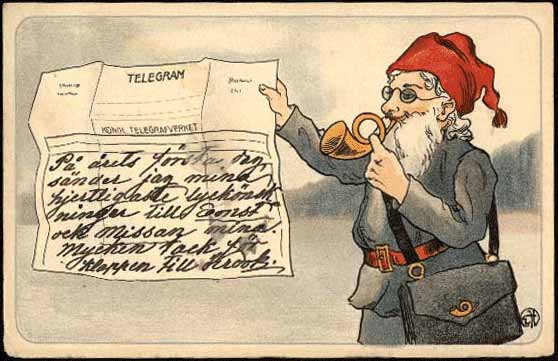 TELEGRAM
KONGL. TELEGRAFVERKET
På årets första dag,
sänder jag mina
hjertligaste lyckönsk
ninger till Ernst
och Missan mina.
Mycken tack för
till